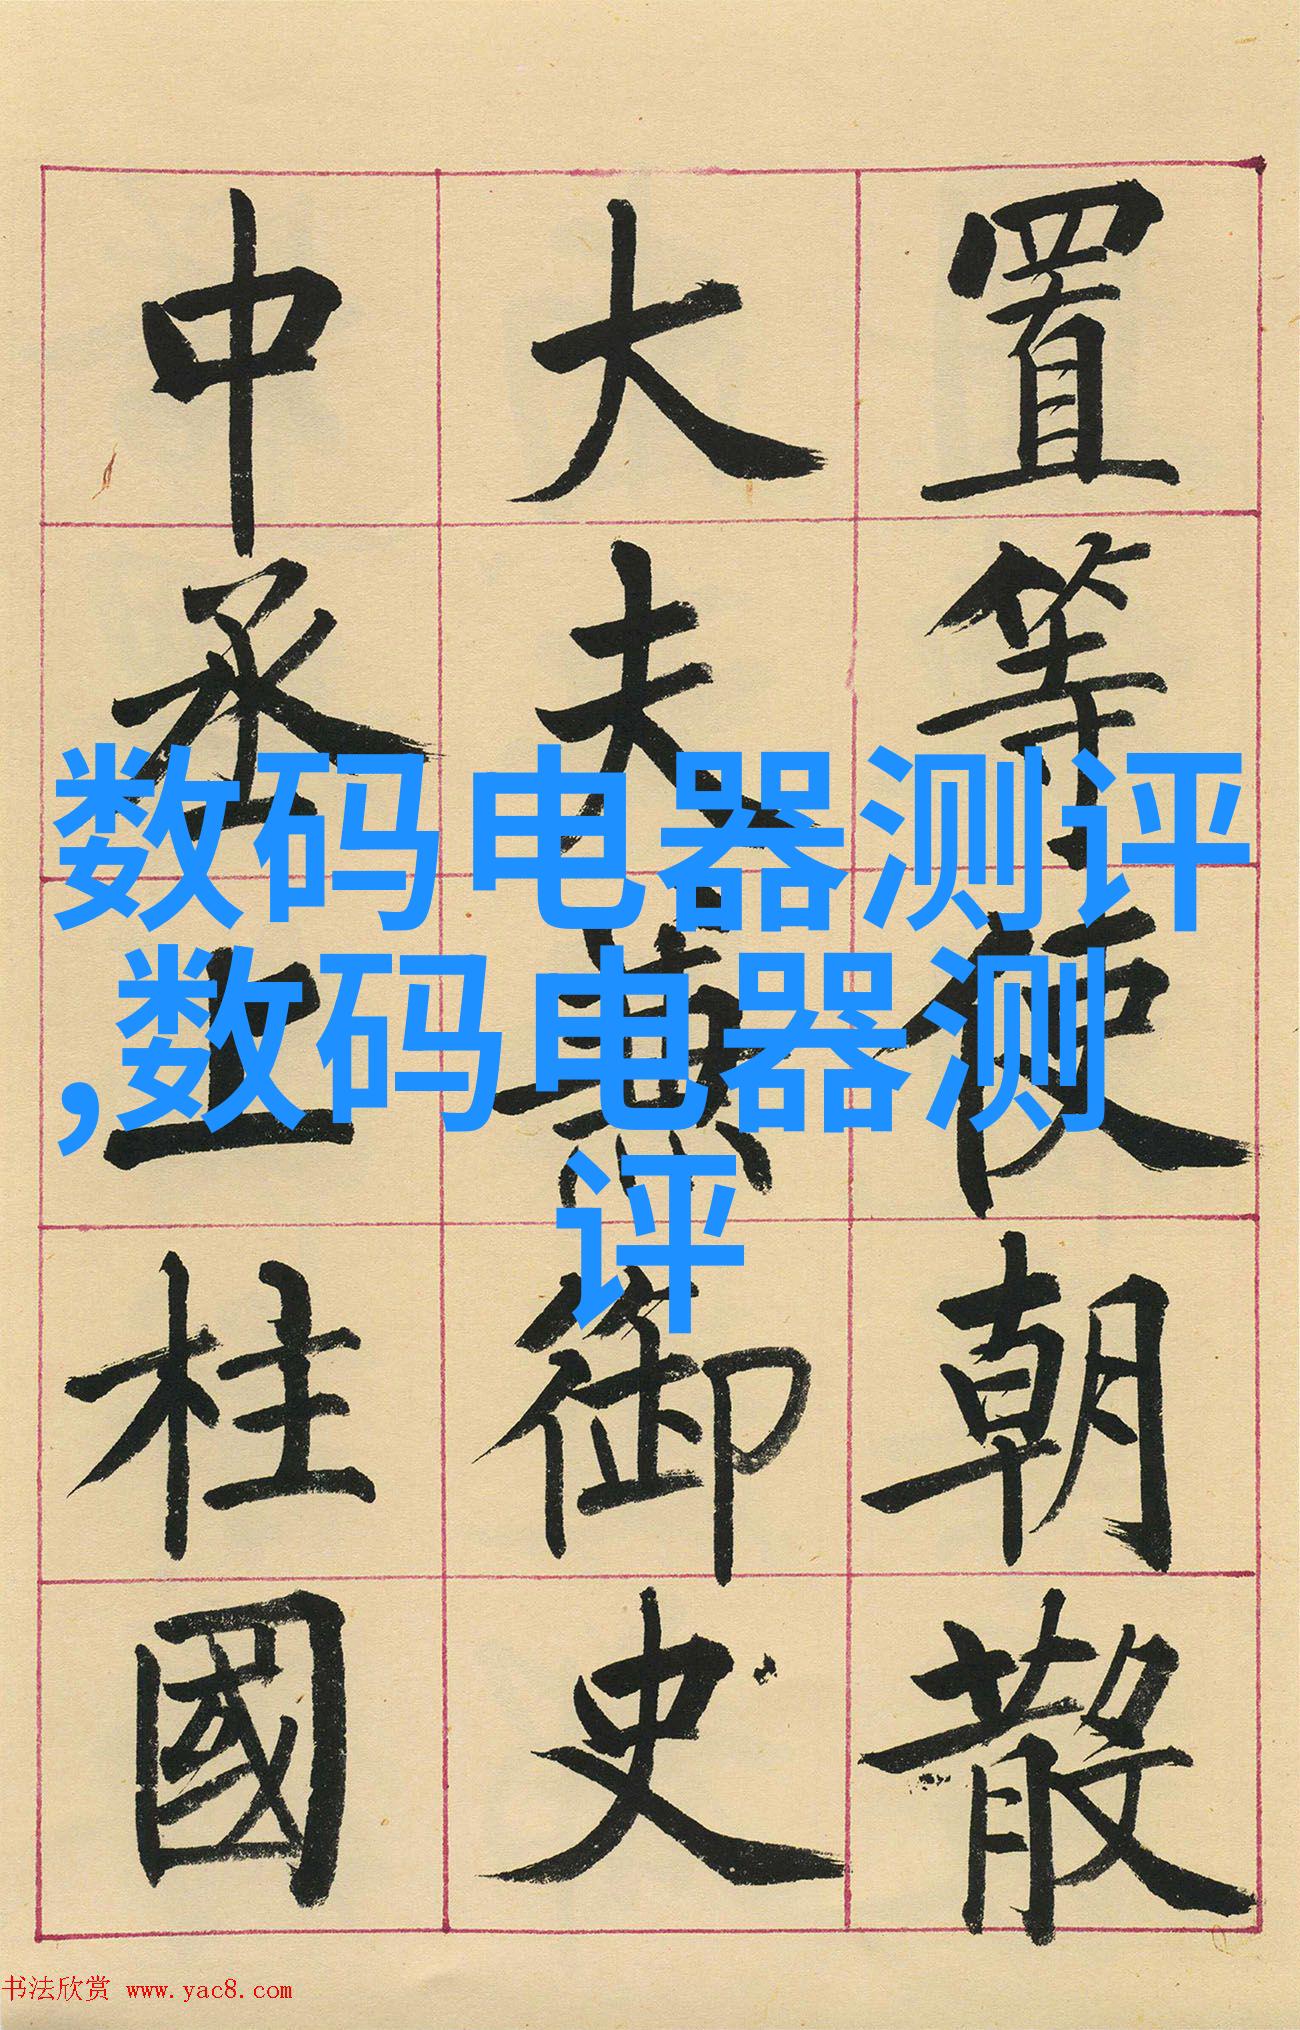 置等使朝散
大夫兼御史
中丞上柱國
数码电器测评
,数码电器测
评
书法欣赏 www.yac8.com